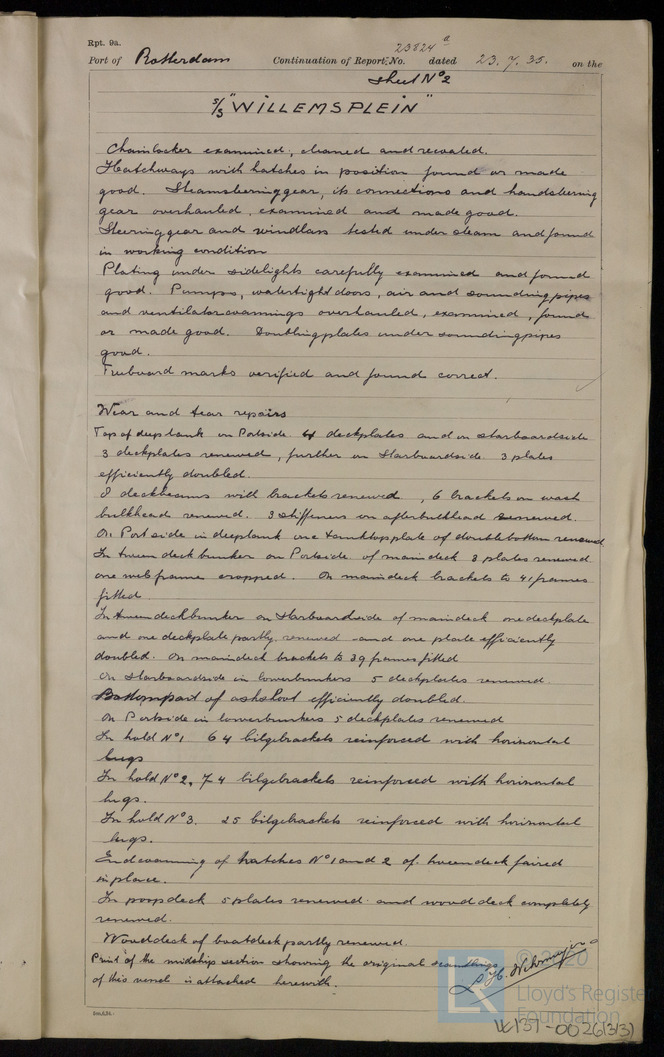 Rpt. 9a.
23824 a
Port of Rotterdam Continuation of Report No. dated 23.7.35. on the
Sheet No 2
S/S "WILLEMSPLEIN"
Chainlocker examined, cleaned and recoated.
Hatchways with hatches in position found or made
good. Steamsteeringgear, its connections and handsteering
gear overhauled, examined and made good.
Steeringgear and windlass tested under steam and found
in working condition
Plating under sidelights carefully examined and found
good. Pumps, watertight doors, air and sounding pipes
and ventilatorcoamings overhauled, examined, found
or made good. Doublingplates under soundingpipes
good.
Freeboard marks verified and found correct.
Wear and tear repairs
Top of deeptank on Portside 4 deckplates and on starboardside
3 deckplates renewed, further on Starboardside 3 plates
efficiently doubled.
8 deckbeams with brackets renewed, 6 brackets on wash
bulkhead renewed. 3 stiffeners on afterbulkhead renewed.
On Portside in deeptank one tanktopplate of doublebottom renewed
In tween deck bunker on Portside of maindeck 3 plates renewed
one webframe cropped. On maindeck brackets to 41 frames
fitted
In tweendeckbunker on Starboardside of maindeck one deckplate
and one deckplate partly renewed and one plate efficiently
doubled. On maindeck brackets to 39 frames fitted
On starboardside in lowerbunkers 5 deckplates renewed.
Bottompart of ashshoot efficiently doubled.
On Portside in lowerbunkers 5 deckplates renewed
In hold No 1 64 bilgebrackets reinforced with horizontal
lugs
In hold No 2. 74 bilgebrackets reinforced with horizontal
lugs.
In hold No 3. 25 bilgebrackets reinforced with horizontal
lugs.
Endcoaming of hatches No 1 and 2 of tweendeck faired
in place.
In poopdeck 5 plates renewed and wooddeck completely
renewed.
Wooddeck of boatdeck partly renewed.
Print of the midship section showing the original scantlings
of this vessel is attached herewith.
LR
© 2020
Lloyd's Register
Foundation
W137-0026(3/3)